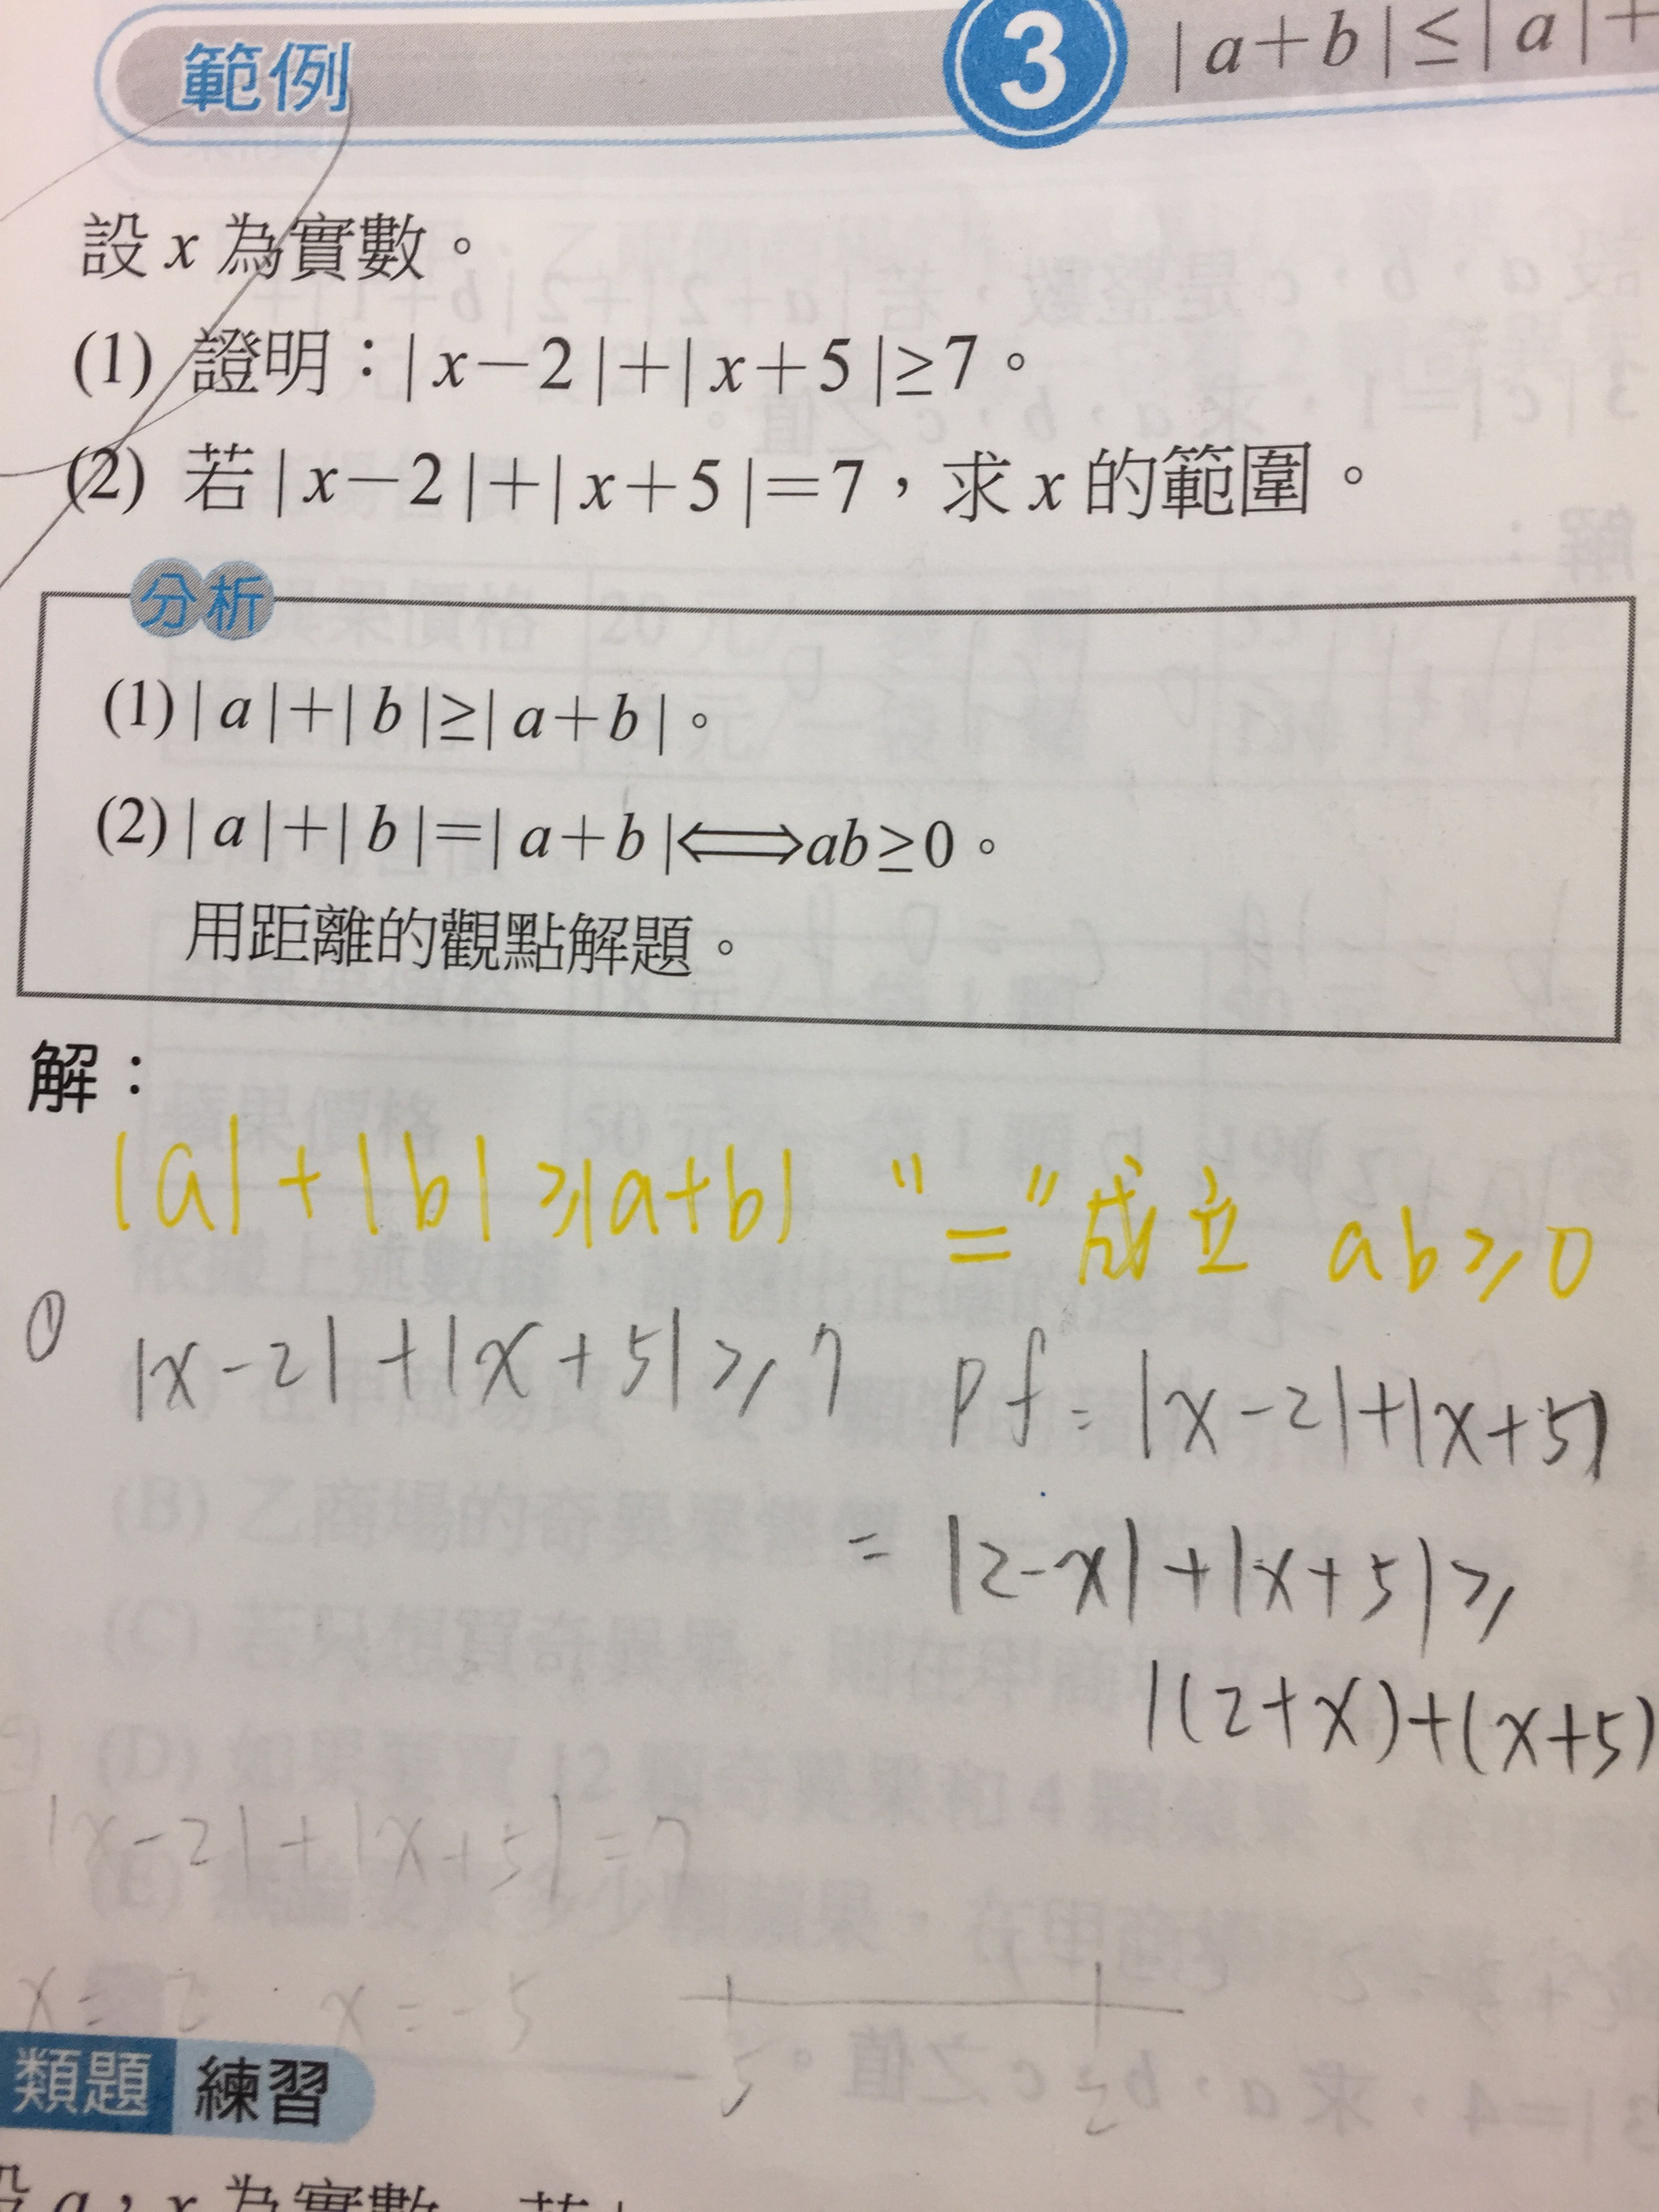 範例 3 |a+b|≤|a|+
設 x 為實數。
(1) 證明：|x−2|+|x+5|≥7。
(2) 若|x−2|+|x+5|=7，求 x 的範圍。
分析
(1)|a|+|b|≥|a+b|。
(2)|a|+|b|=|a+b|⟺ab≥0。
用距離的觀點解題。
解：
|a|+|b|≥|a+b| "="成立 ab≥0
① |x-2|+|x+5|≥7 pf=|x-2|+|x+5|
=|2-x|+|x+5|≥
|(2+x)+(x+5)
|x-2|+|x+5|=7
x=2 x=-5
-5 2
類題 練習
設 a，x 為實數，若